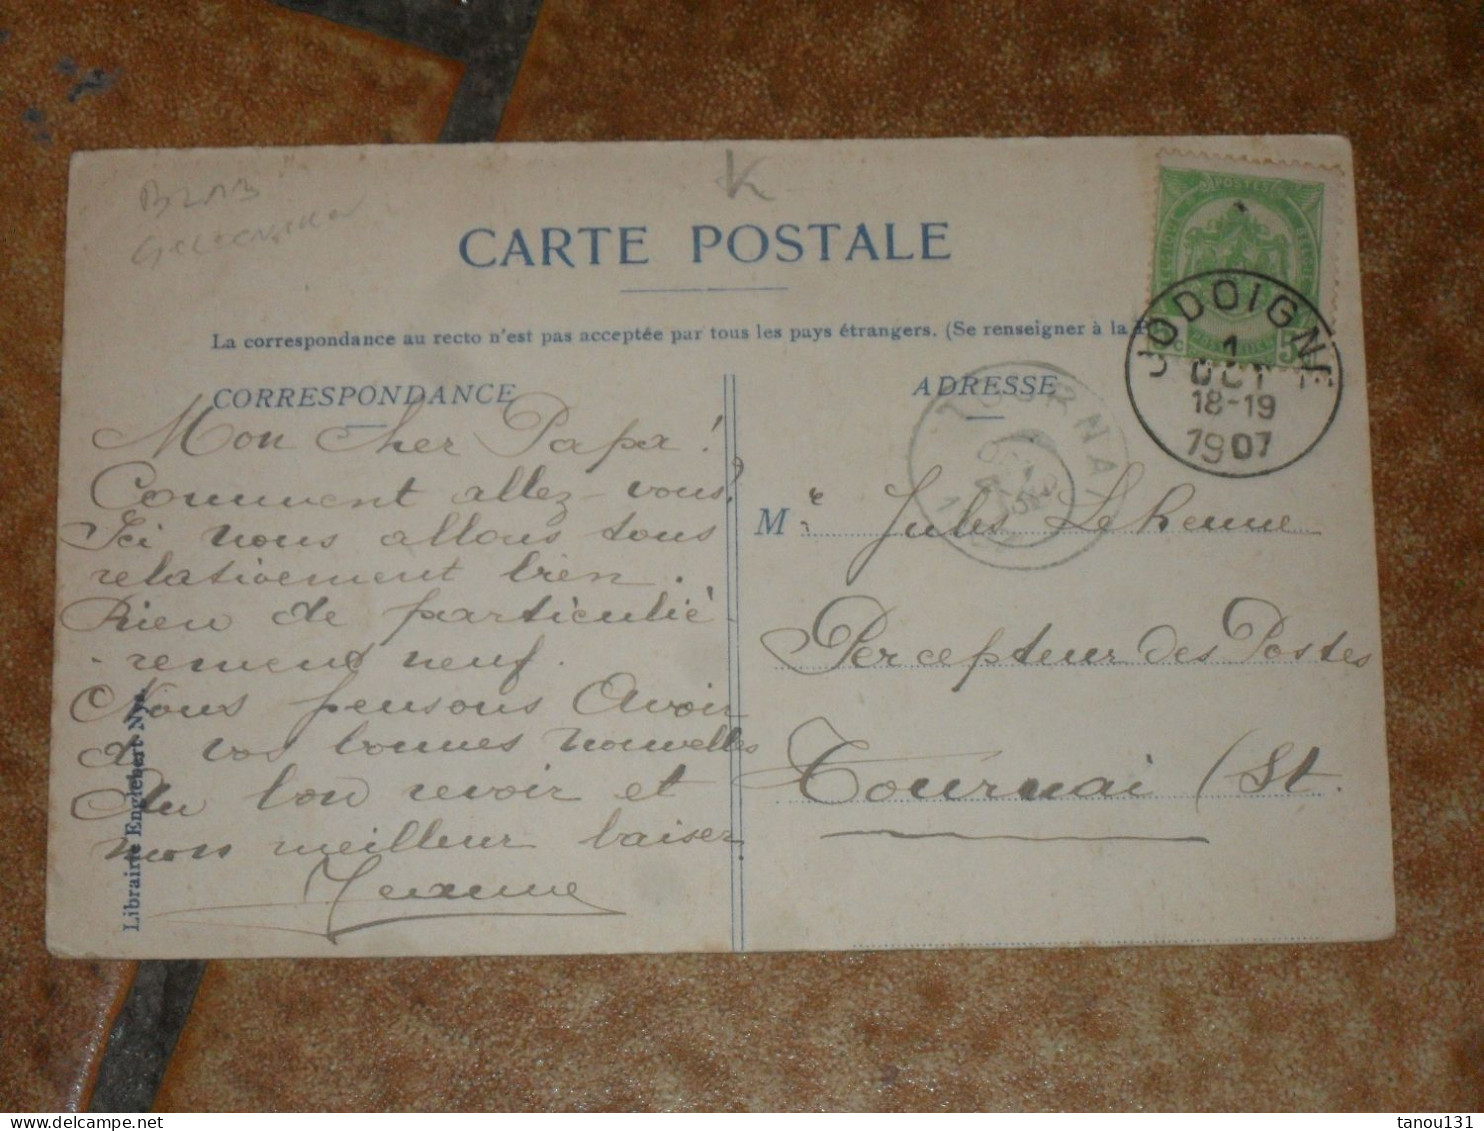 BRAB
CARTE POSTALE
La correspondance au recto n'est pas acceptée par tous les pays étrangers. (Se renseigner à la P
CORRESPONDANCE
Mon cher Papa!
Comment allez-vous?
Ici nous allons tous
relativement bien.
Rien de particuliè
-rement neuf.
Nous pensons Avoir
de vos bonnes nouvelles
Au bon revoir et
mon meilleur baiser
Jeanne
Librairie Englebert-Nys.
ADRESSE
Mr Jules Lehenne
Percepteur des Postes
Tournai (St.
POSTES
5
JODOIGNE
1
OCT
18-19
1907
TOURNAI
K
tanou131